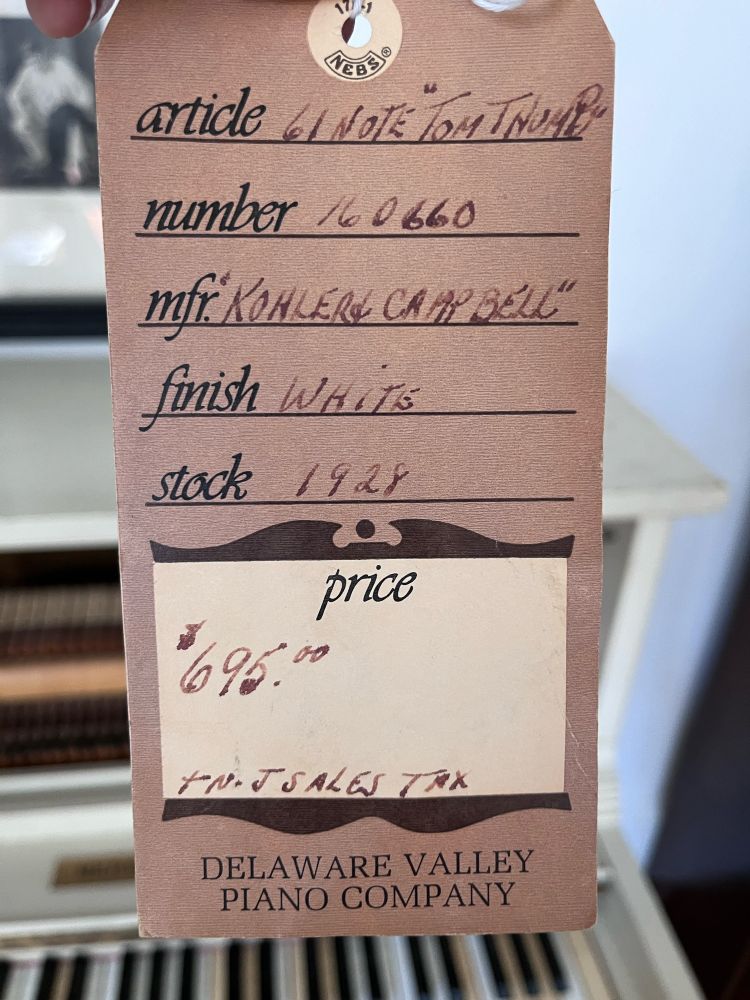 NEBS®
article 61 NOTE "TOM THUMB"
number 160660
mfr. "KOHLER & CAMPBELL"
finish WHITE
stock 1928
price
$695.00
+ N.J SALES TAX
DELAWARE VALLEY
PIANO COMPANY